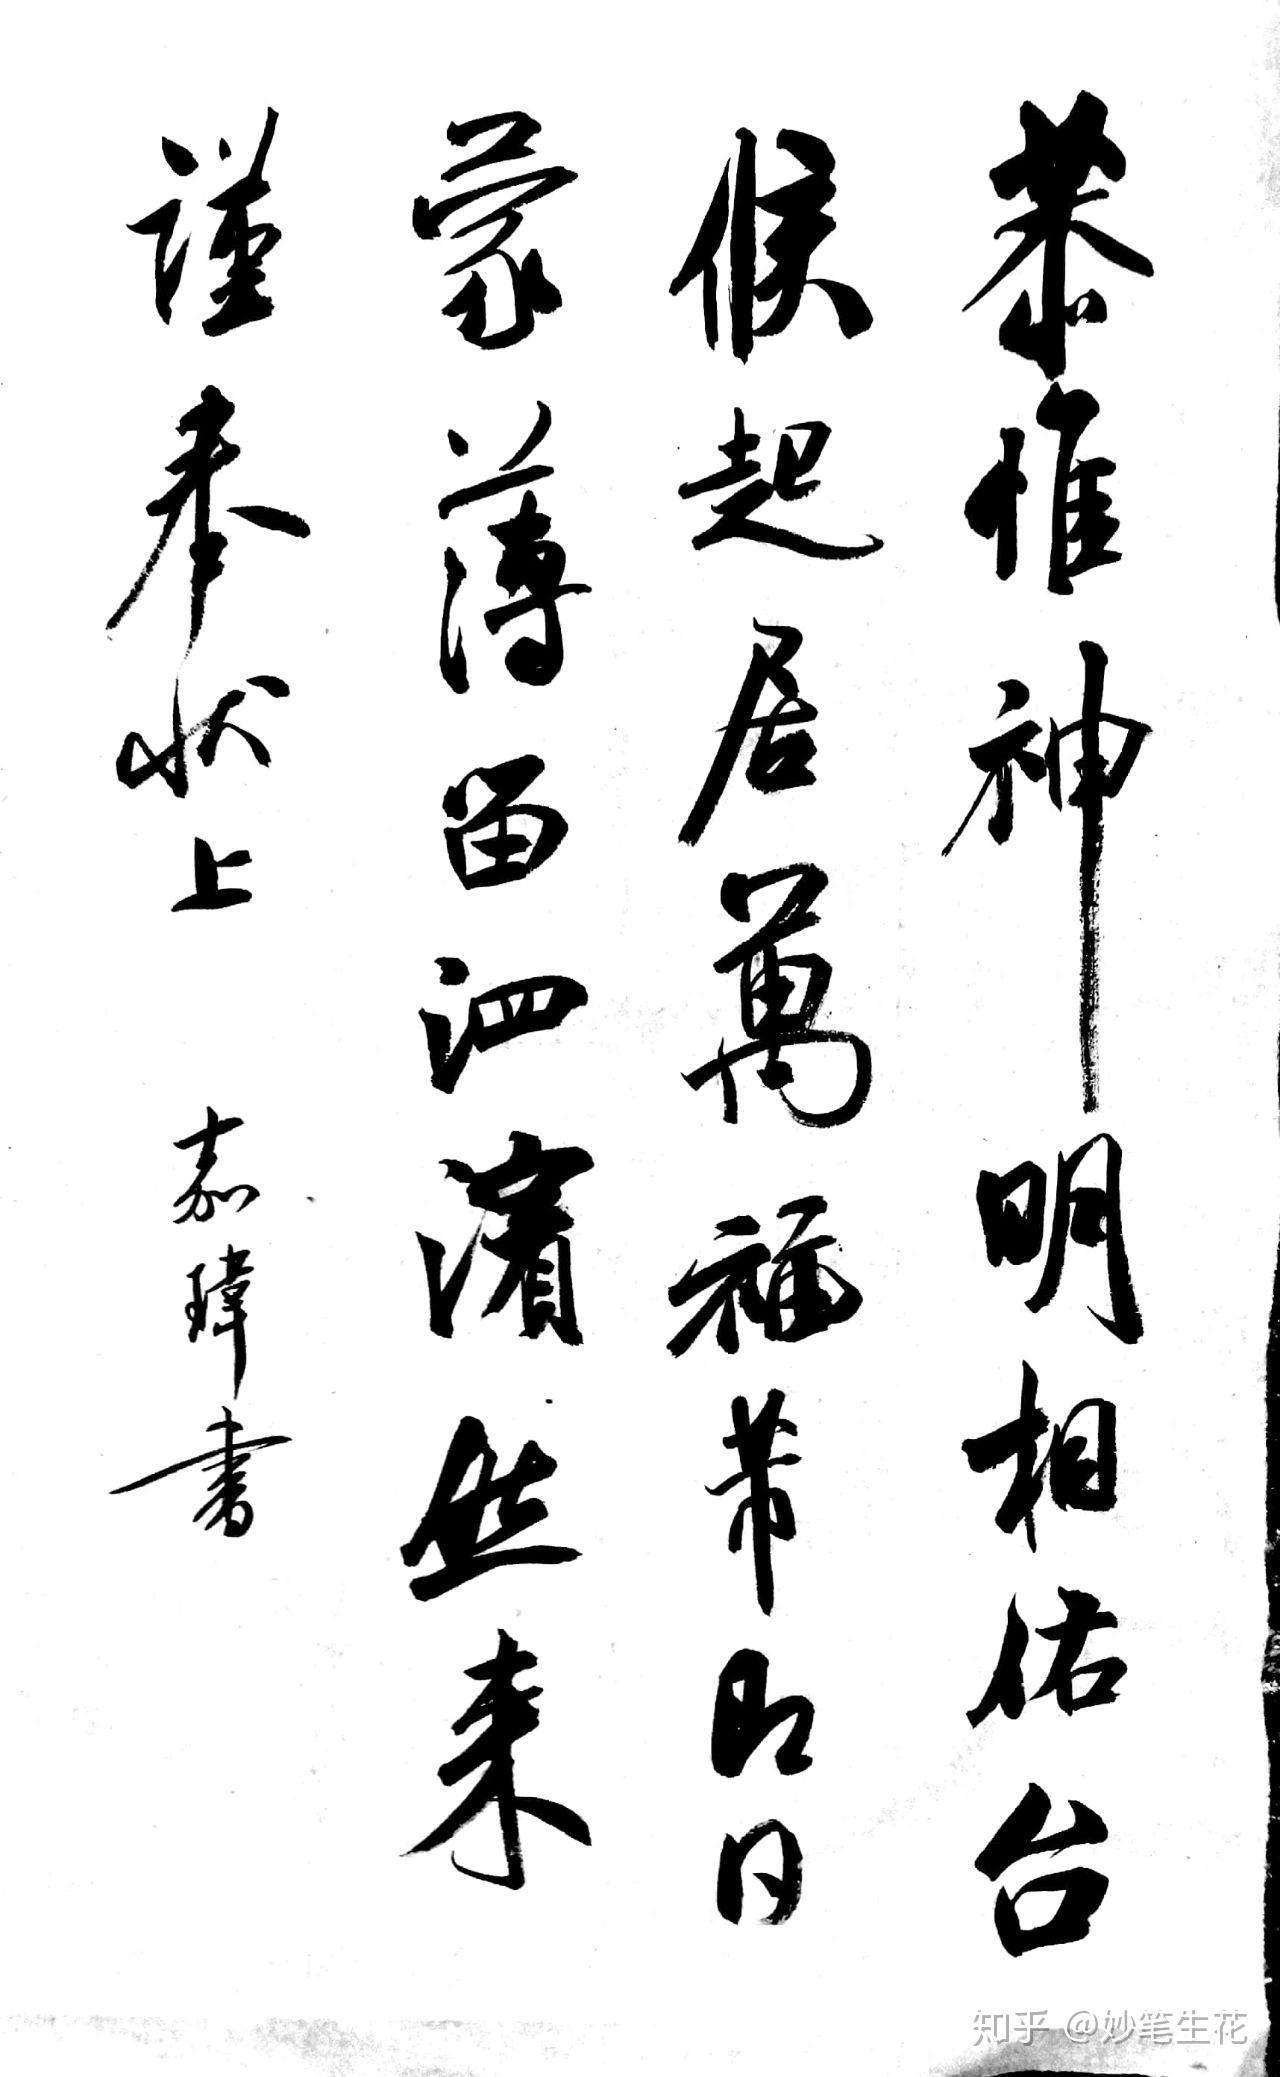 恭惟神明相佑台
候起居萬福芾即日
蒙薄留泗濱然来
謹奉状上 嘉瑋書
知乎 @妙笔生花